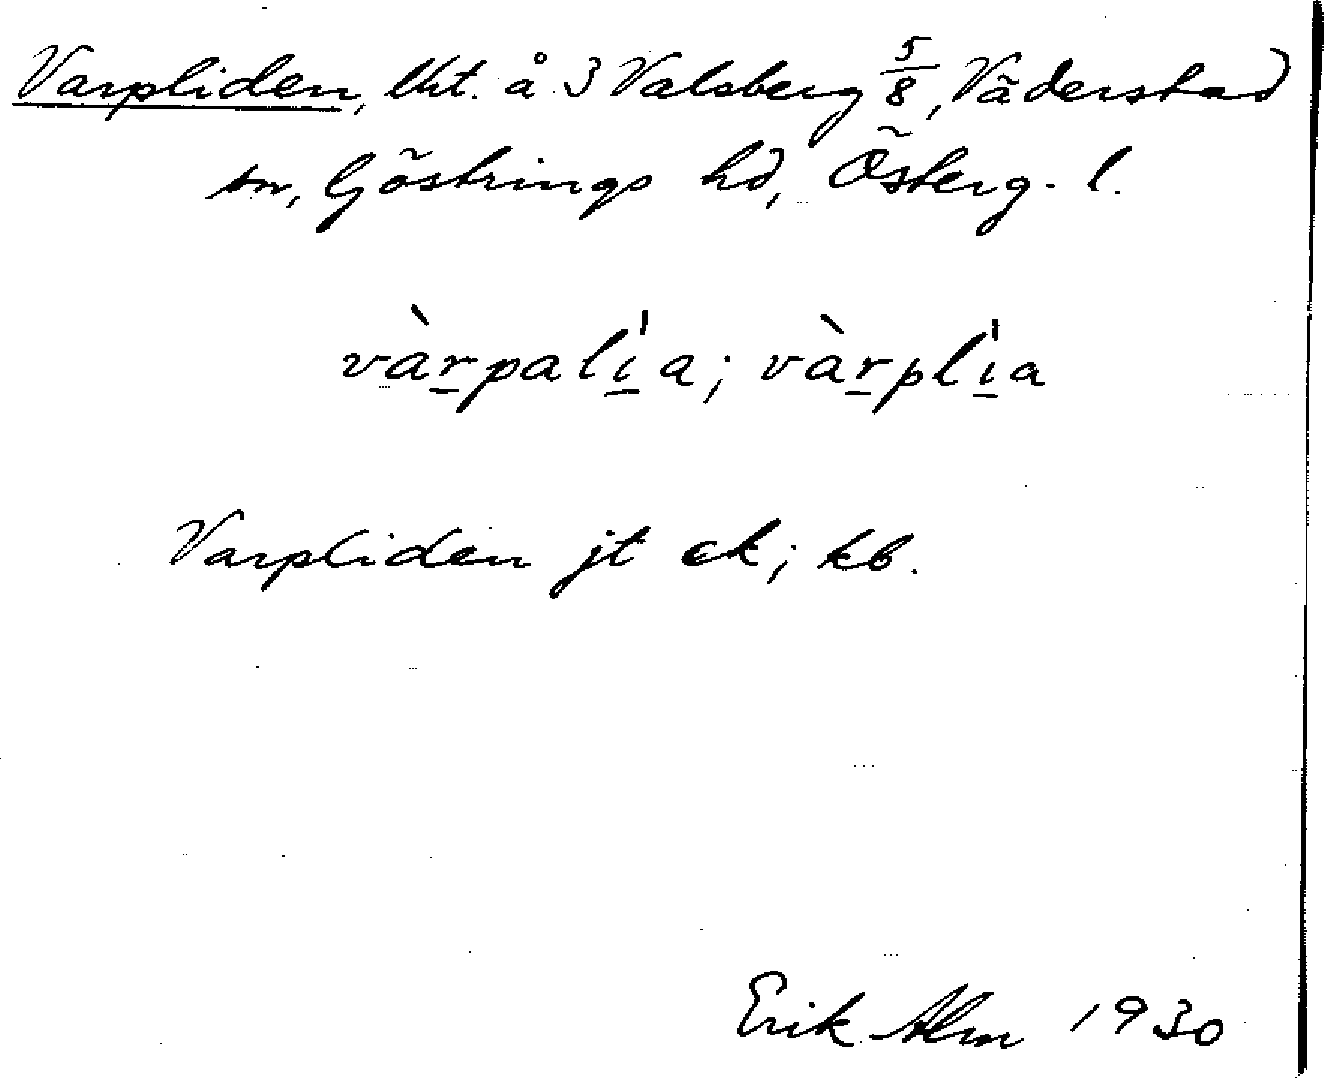 Varpliden, lht. å 3 Valsberg 5/8, Väderstad
sn, Göstrings hd, Österg. l.
vàrpalı̍a; vàrplı̍a
Varpliden jt ek; kb.
Erik Alm 1930